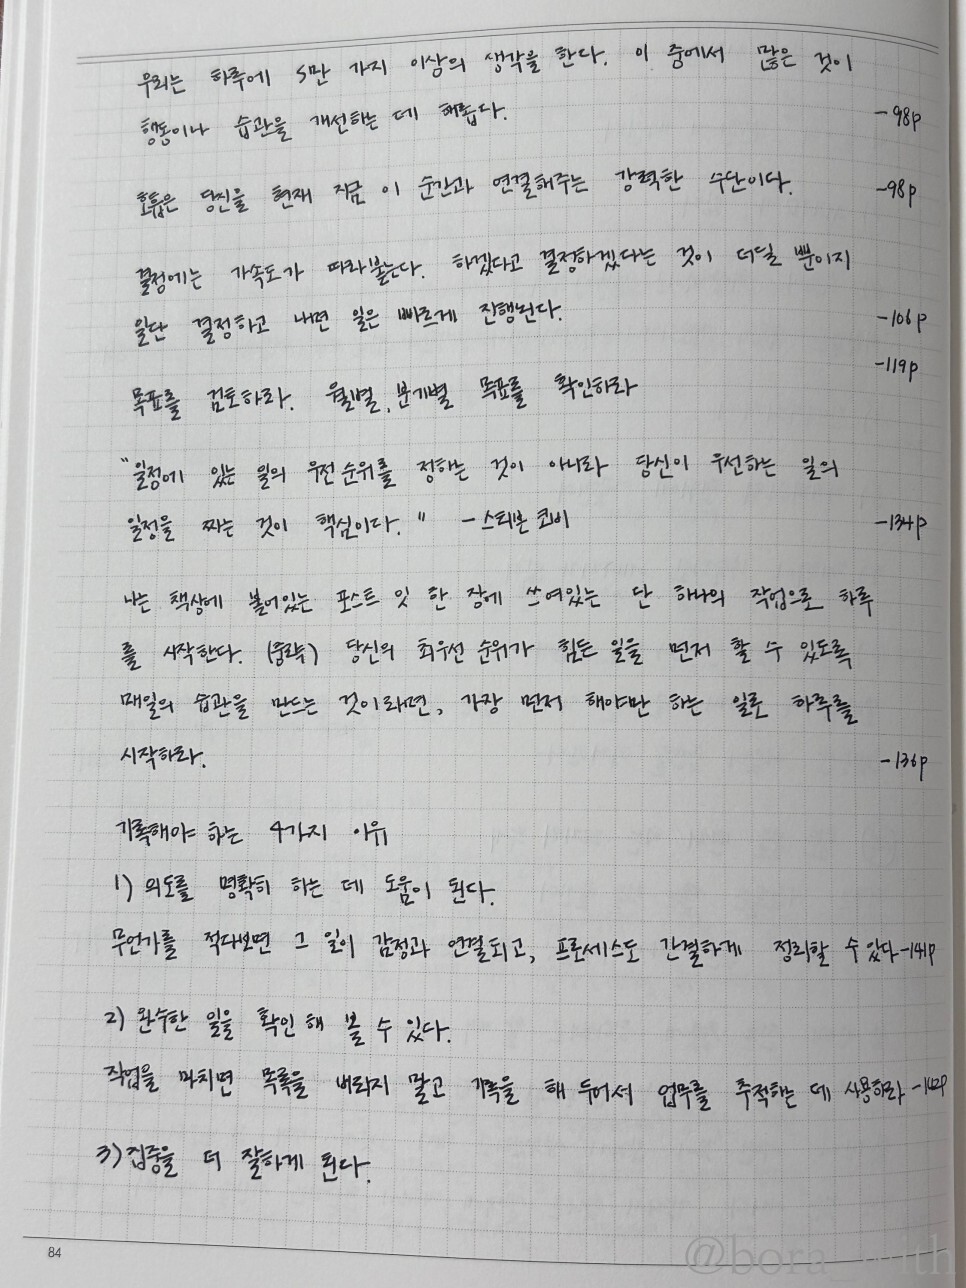 우리는 하루에 5만 가지 이상의 생각을 한다. 이 중에서 많은 것이
행동이나 습관을 개선하는 데 해롭다. -98p
호흡은 당신을 현재 지금 이 순간과 연결해주는 강력한 수단이다. -98p
결정에는 가속도가 따라붙는다. 하겠다고 결정하겠다는 것이 더딜 뿐이지
일단 결정하고 나면 일은 빠르게 진행된다. -106p
-119p
목표를 검토하라. 월별, 분기별 목표를 확인하라
"일정에 있는 일의 우선순위를 정하는 것이 아니라 당신이 우선하는 일의
일정을 짜는 것이 핵심이다." -스티븐 코비 -134p
나는 책상에 붙어있는 포스트 잇 한 장에 쓰여있는 단 하나의 작업으로 하루
를 시작한다. (중략) 당신의 최우선 순위가 힘든 일을 먼저 할 수 있도록
매일의 습관을 만드는 것이라면, 가장 먼저 해야만 하는 일로 하루를
시작하라. -136p
기록해야 하는 4가지 이유
1) 의도를 명확히 하는 데 도움이 된다.
무언가를 적다보면 그 일이 감정과 연결되고, 프로세스도 간결하게 정리할 수 있다-141p
2) 완수한 일을 확인 해 볼 수 있다.
작업을 마치면 목록을 버리지 말고 기록을 해 두어서 업무를 추적하는 데 사용하라 -142p
3) 집중을 더 잘하게 된다.
84
@bora_with